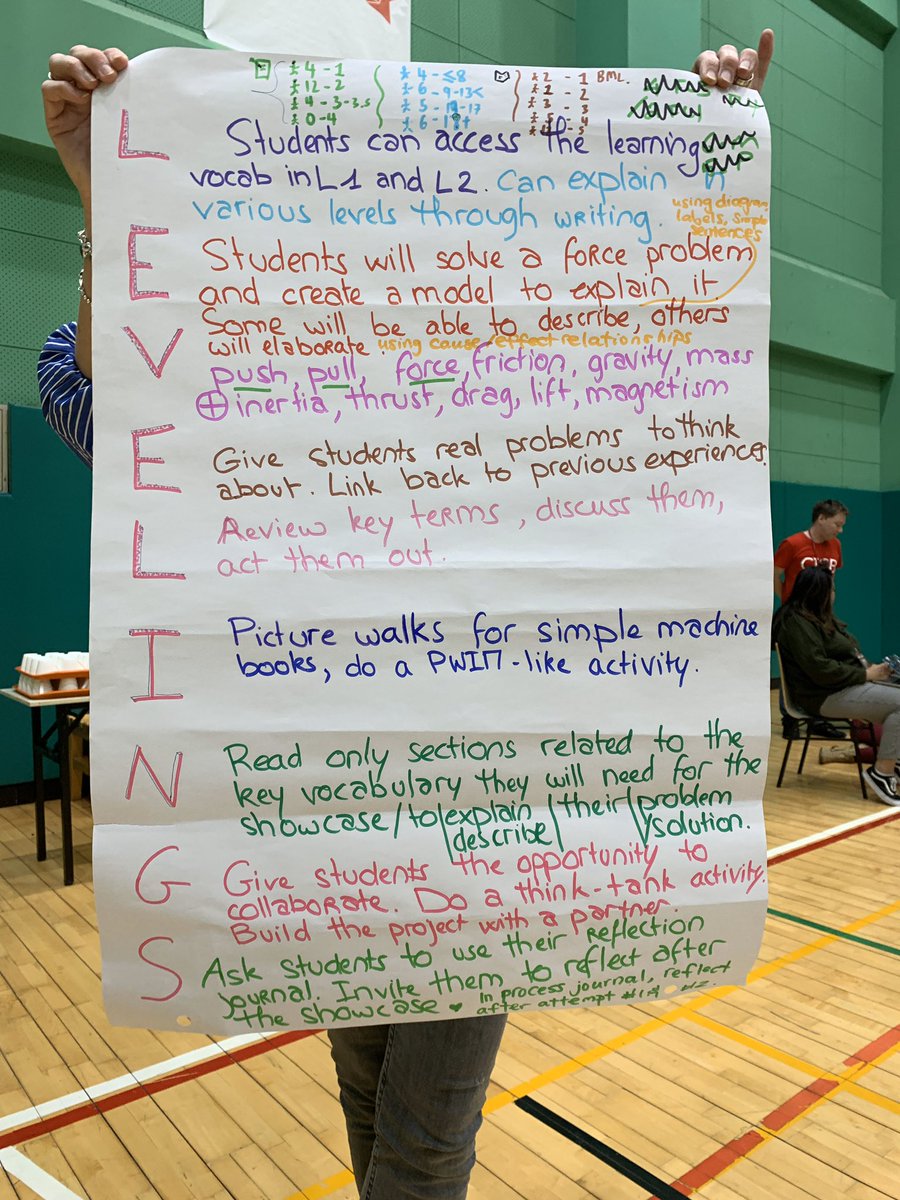 4 - 1
12 - 2
4 - 3-3.5
0 - 4
4 - ≤8
6 - 9-13<
5 - 17
6 -
2 - 1 BML.
2 - 2
3 - 3
L
Students can access the learning
vocab in L1 and L2. Can explain in
various levels through writing.
using diagram,
labels, simple
sentences
E
Students will solve a force problem
and create a model to explain it.
V
Some will be able to describe, others
will elaborate. using cause/effect relationships
push, pull, force, friction, gravity, mass
⊕ inertia, thrust, drag, lift, magnetism
E
Give students real problems to think
about. Link back to previous experiences.
L
Review key terms, discuss them,
act them out.
I
Picture walks for simple machine
books, do a PWIM-like activity.
N
Read only sections related to the
key vocabulary they will need for the
showcase/to/explain/their/problem
describe solution.
G
Give students the opportunity to
collaborate. Do a think-tank activity.
Build the project with a partner.
S
Ask students to use their reflection
journal. Invite them to reflect after
the showcase ♥ In process journal, reflect
after attempt #1 #2.